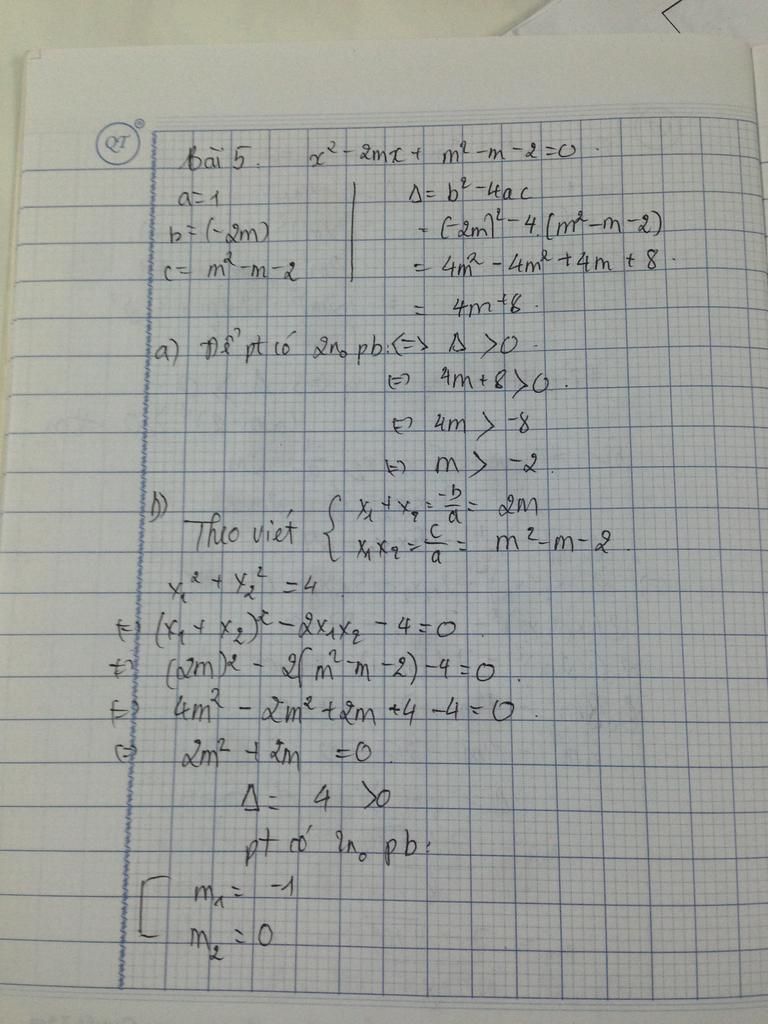 QT
Bài 5. x² - 2mx + m² - m - 2 = 0.
a = 1
b = (-2m)
c = m² - m - 2
Δ = b² - 4ac
= (-2m)² - 4.(m² - m - 2)
= 4m² - 4m² + 4m + 8.
= 4m + 8.
a) Để pt có 2n₀ pb: <=> Δ > 0.
<=> 4m + 8 > 0.
<=> 4m > -8
<=> m > -2
b)
Theo viét { x₁ + x₂ = -b/a = 2m
x₁x₂ = c/a = m² - m - 2.
x₁² + x₂² = 4
<=> (x₁ + x₂)² - 2x₁x₂ - 4 = 0.
<=> (2m)² - 2(m² - m - 2) - 4 = 0.
<=> 4m² - 2m² + 2m + 4 - 4 = 0.
<=> 2m² + 2m = 0
Δ = 4 > 0
pt có 2n₀ pb:
[ m₁ = -1
m₂ = 0